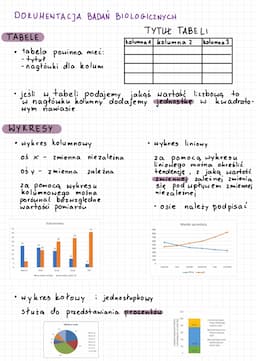 DOKUMENTACJA BADAŃ BIOLOGICZNYCH
TABELE
TYTUŁ TABELI
kolumna 1 kolumna 2 kolumna 3
• tabela powinna mieć:
- tytuł
- nagłówki dla kolumn
• jeśli w tabeli podajemy jakąś wartość liczbową to
w nagłówku kolumny dodajemy jednostkę w kwadrato-
wym nawiasie
WYKRESY
• wykres kolumnowy
oś x - zmienna niezależna
oś y - zmienna zależna
za pomocą wykresu
kolumnowego można
porównać bezwzględne
wartości pomiaru
• wykres liniowy
za pomocą wykresu
liniowego można określić
tendencję, z jaką wartość
zmiennej zależnej zmienia
się pod wpływem zmiennej
niezależnej
• osie należy podpisać
• wykres kołowy i jednosłupkowy
służą do przedstawiania procentów